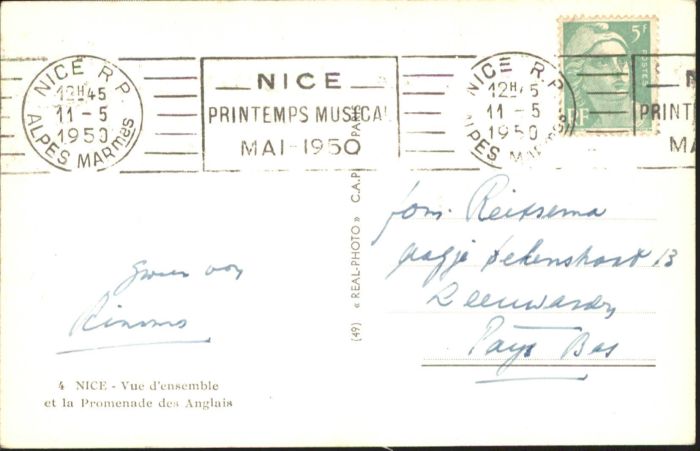 NICE R.P
12H45
11-5
1950
ALPES MARmes
NICE
PRINTEMPS MUSICAL
MAI-1950
NICE R.P
12H45
11-5
1950
ALPES MARmes
N
PRINT
MA
5F
POSTES
RF
(49) « REAL-PHOTO » C.A.P. PARIS
fam. Reitsema
13
Leeuwarden
Pays Bas
van
4 NICE - Vue d'ensemble
et la Promenade des Anglais